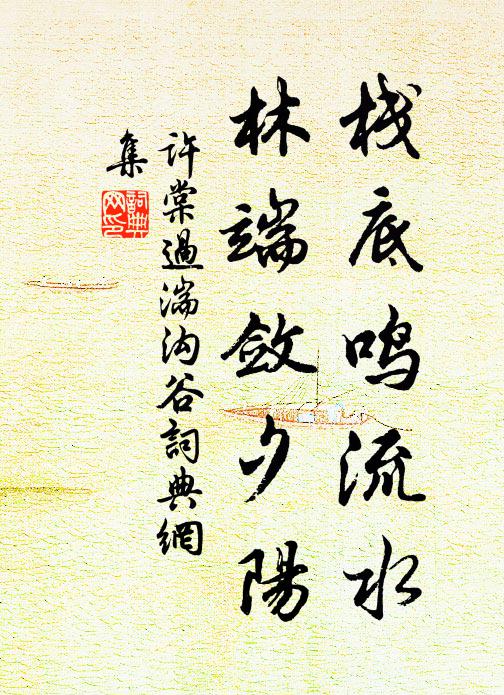 栈底鸣流水
林端敛夕陽
許棠過湍沟谷詞典網
集
詞典
网印